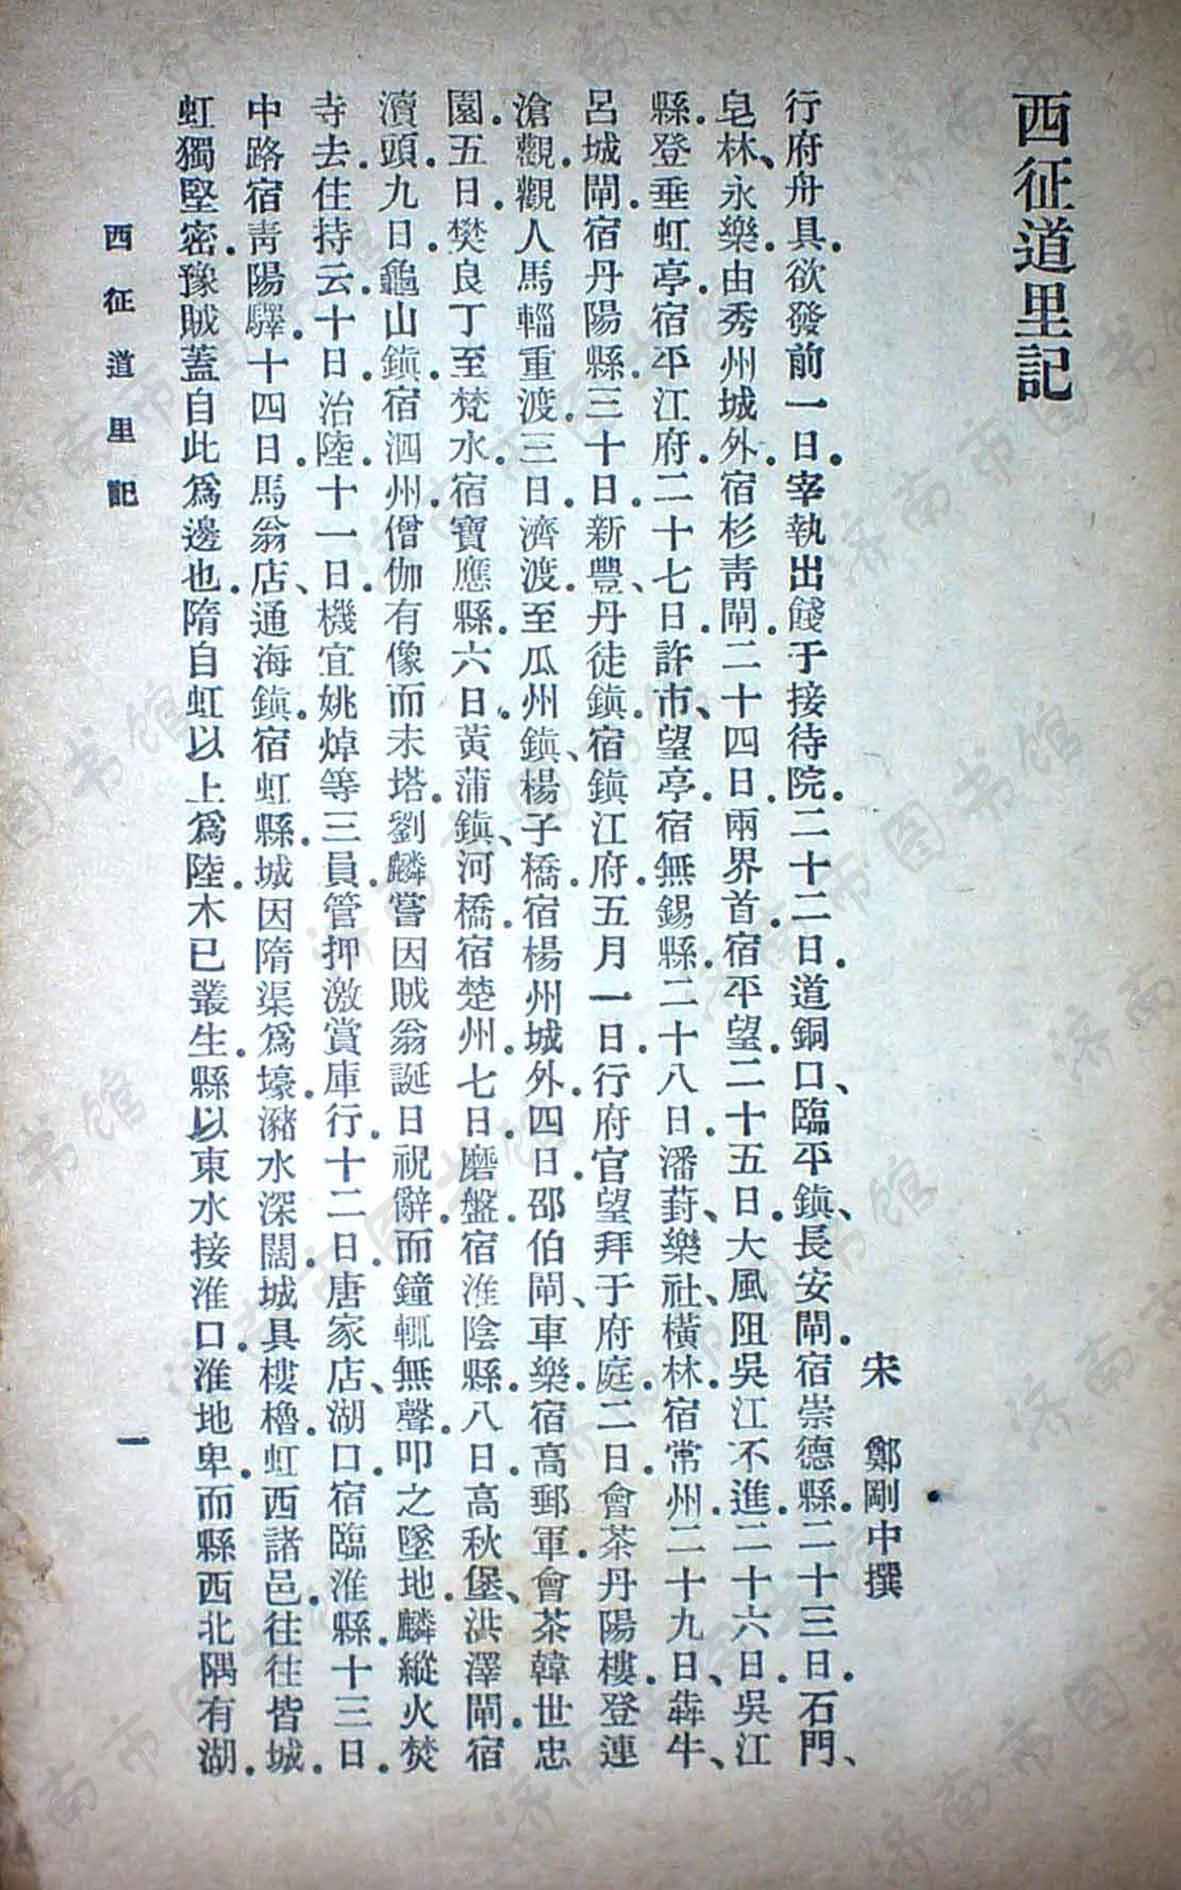 西征道里記
宋　鄭剛中撰
行府舟具。欲發前一日。宰執出餞于接待院。二十二日。道銅口、臨平鎮、長安閘。宿崇德縣。二十三日。石門、
皂林、永樂。由秀州城外。宿杉青閘。二十四日。兩界首。宿平望。二十五日。大風阻吳江不進。二十六日。吳江
縣。登垂虹亭。宿平江府。二十七日。許市、望亭。宿無錫縣。二十八日。潘葑、樂社、橫林。宿常州。二十九日、犇牛、
呂城閘。宿丹陽縣。三十日。新豐、丹徒鎮。宿鎮江府。五月一日。行府官望拜于府庭。二日。會茶丹陽樓。登連
滄觀。觀人馬輜重渡。三日。濟渡。至瓜州鎮、楊子橋。宿楊州城外。四日。邵伯閘、車樂。宿高郵軍。會茶韓世忠
園。五日。樊良丁至梵水。宿寶應縣。六日。黃蒲鎮、河橋。宿楚州。七日。磨盤。宿淮陰縣。八日。高秋堡、洪澤閘。宿
瀆頭。九日。龜山鎮。宿泗州。僧伽有像而未塔。劉麟嘗因賊翁誕日祝辭。而鐘輒無聲。叩之墜地。麟縱火焚
寺去。住持云。十日。治陸。十一日。機宜姚焯等三員。管押激賞庫行。十二日。唐家店、湖口。宿臨淮縣。十三日。
中路宿靑陽驛。十四日。馬翁店、通海鎮。宿虹縣。城因隋渠爲壕。瀦水深闊。城具樓櫓。虹西諸邑。往往皆城。
虹獨堅密。豫賊蓋自此爲邊也。隋自虹以上爲陸。木已叢生。縣以東水接淮口。淮地卑。而縣西北隅有湖。
西征道里記
一